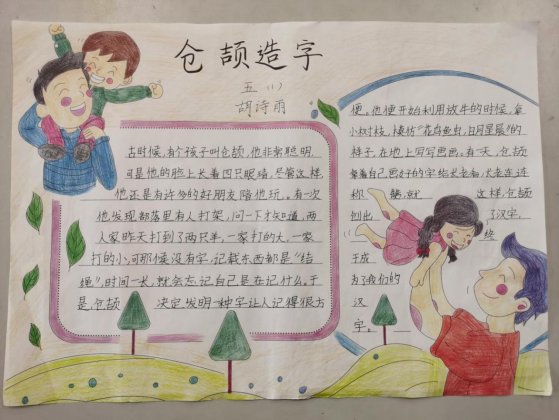 仓颉造字
五(1)
胡诗雨
古时候,有个孩子叫仓颉,他非常聪明,
可是他的脸上长着四只眼睛,尽管这样,
他还是有许多的好朋友陪他玩。有一次
他发现部落里有人打架,问一下才知道,两
人家昨天打到了两只羊,一家打的大,一家
打的小,可那候没有字,记载东西都是“结
绳”,时间一长,就会忘记自己是在记什么。于
是,仓颉 决定发明一种字让人记得很方
便。他便开始利用放牛的时候,拿
小树枝,模仿“花鸟鱼虫,日月星辰”的
样子,在地上写写画画。有一天,仓颉
拿着自己画好的字给长老看,长老连连
称 这样,仓颉
创出 了汉字,
终
于成
为了我们的
汉
字。